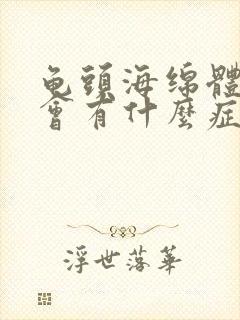 龟頭海绵體
會有什麼症
浮世落華